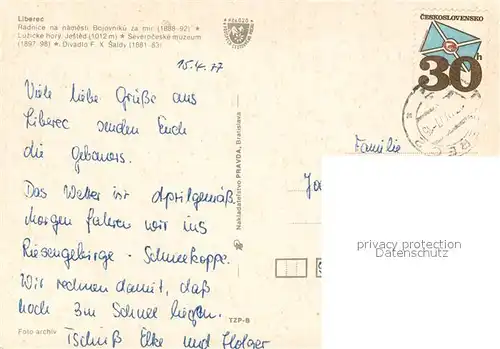 Liberec
Radnice na náměstí Bojovníků za mír (1888-92) ★
Lužické hory, Ještěd (1012 m) ★ Severočeské muzeum
(1897-98) ★ Divadlo F. X. Šaldy (1881-83)
ČESKOSLOVENSKO
30h
15.4.77
Viele liebe Grüße aus
Liberec senden Euch
die Gebauers.
Das Wetter ist Aprilgemäß.
Morgen fahren wir ins
Riesengebirge - Schneekoppe.
Wir rechnen damit, daß
noch 3m Schnee liegen.
Tschüß Elke und Holger
Nakladatelstvo PRAVDA, Bratislava
Familie
privacy protection
Datenschutz
TZP-B
Foto archiv